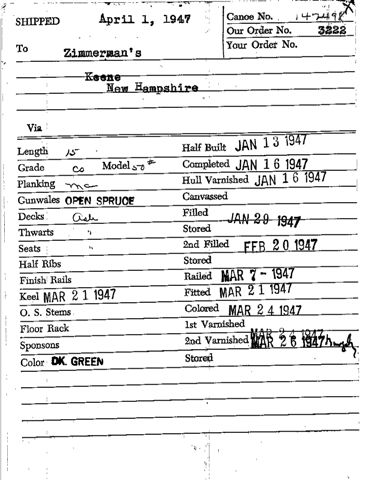 SHIPPED April 1, 1947
Canoe No. 147498
Our Order No. 3222
Your Order No.
To Zimmerman's
Keene
New Hampshire
Via
Length 15 Half Built JAN 13 1947
Grade CO Model 50# Completed JAN 16 1947
Planking Hull Varnished JAN 16 1947
Gunwales OPEN SPRUCE Canvassed
Decks Ash Filled JAN 29 1947
Thwarts " Stored
Seats " 2nd Filled FEB 20 1947
Half Ribs Stored
Finish Rails Railed MAR 7 - 1947
Keel MAR 21 1947 Fitted MAR 21 1947
O. S. Stems Colored MAR 24 1947
Floor Rack 1st Varnished MAR 24 1947
Sponsons 2nd Varnished MAR 26 1947
Color DK. GREEN Stored